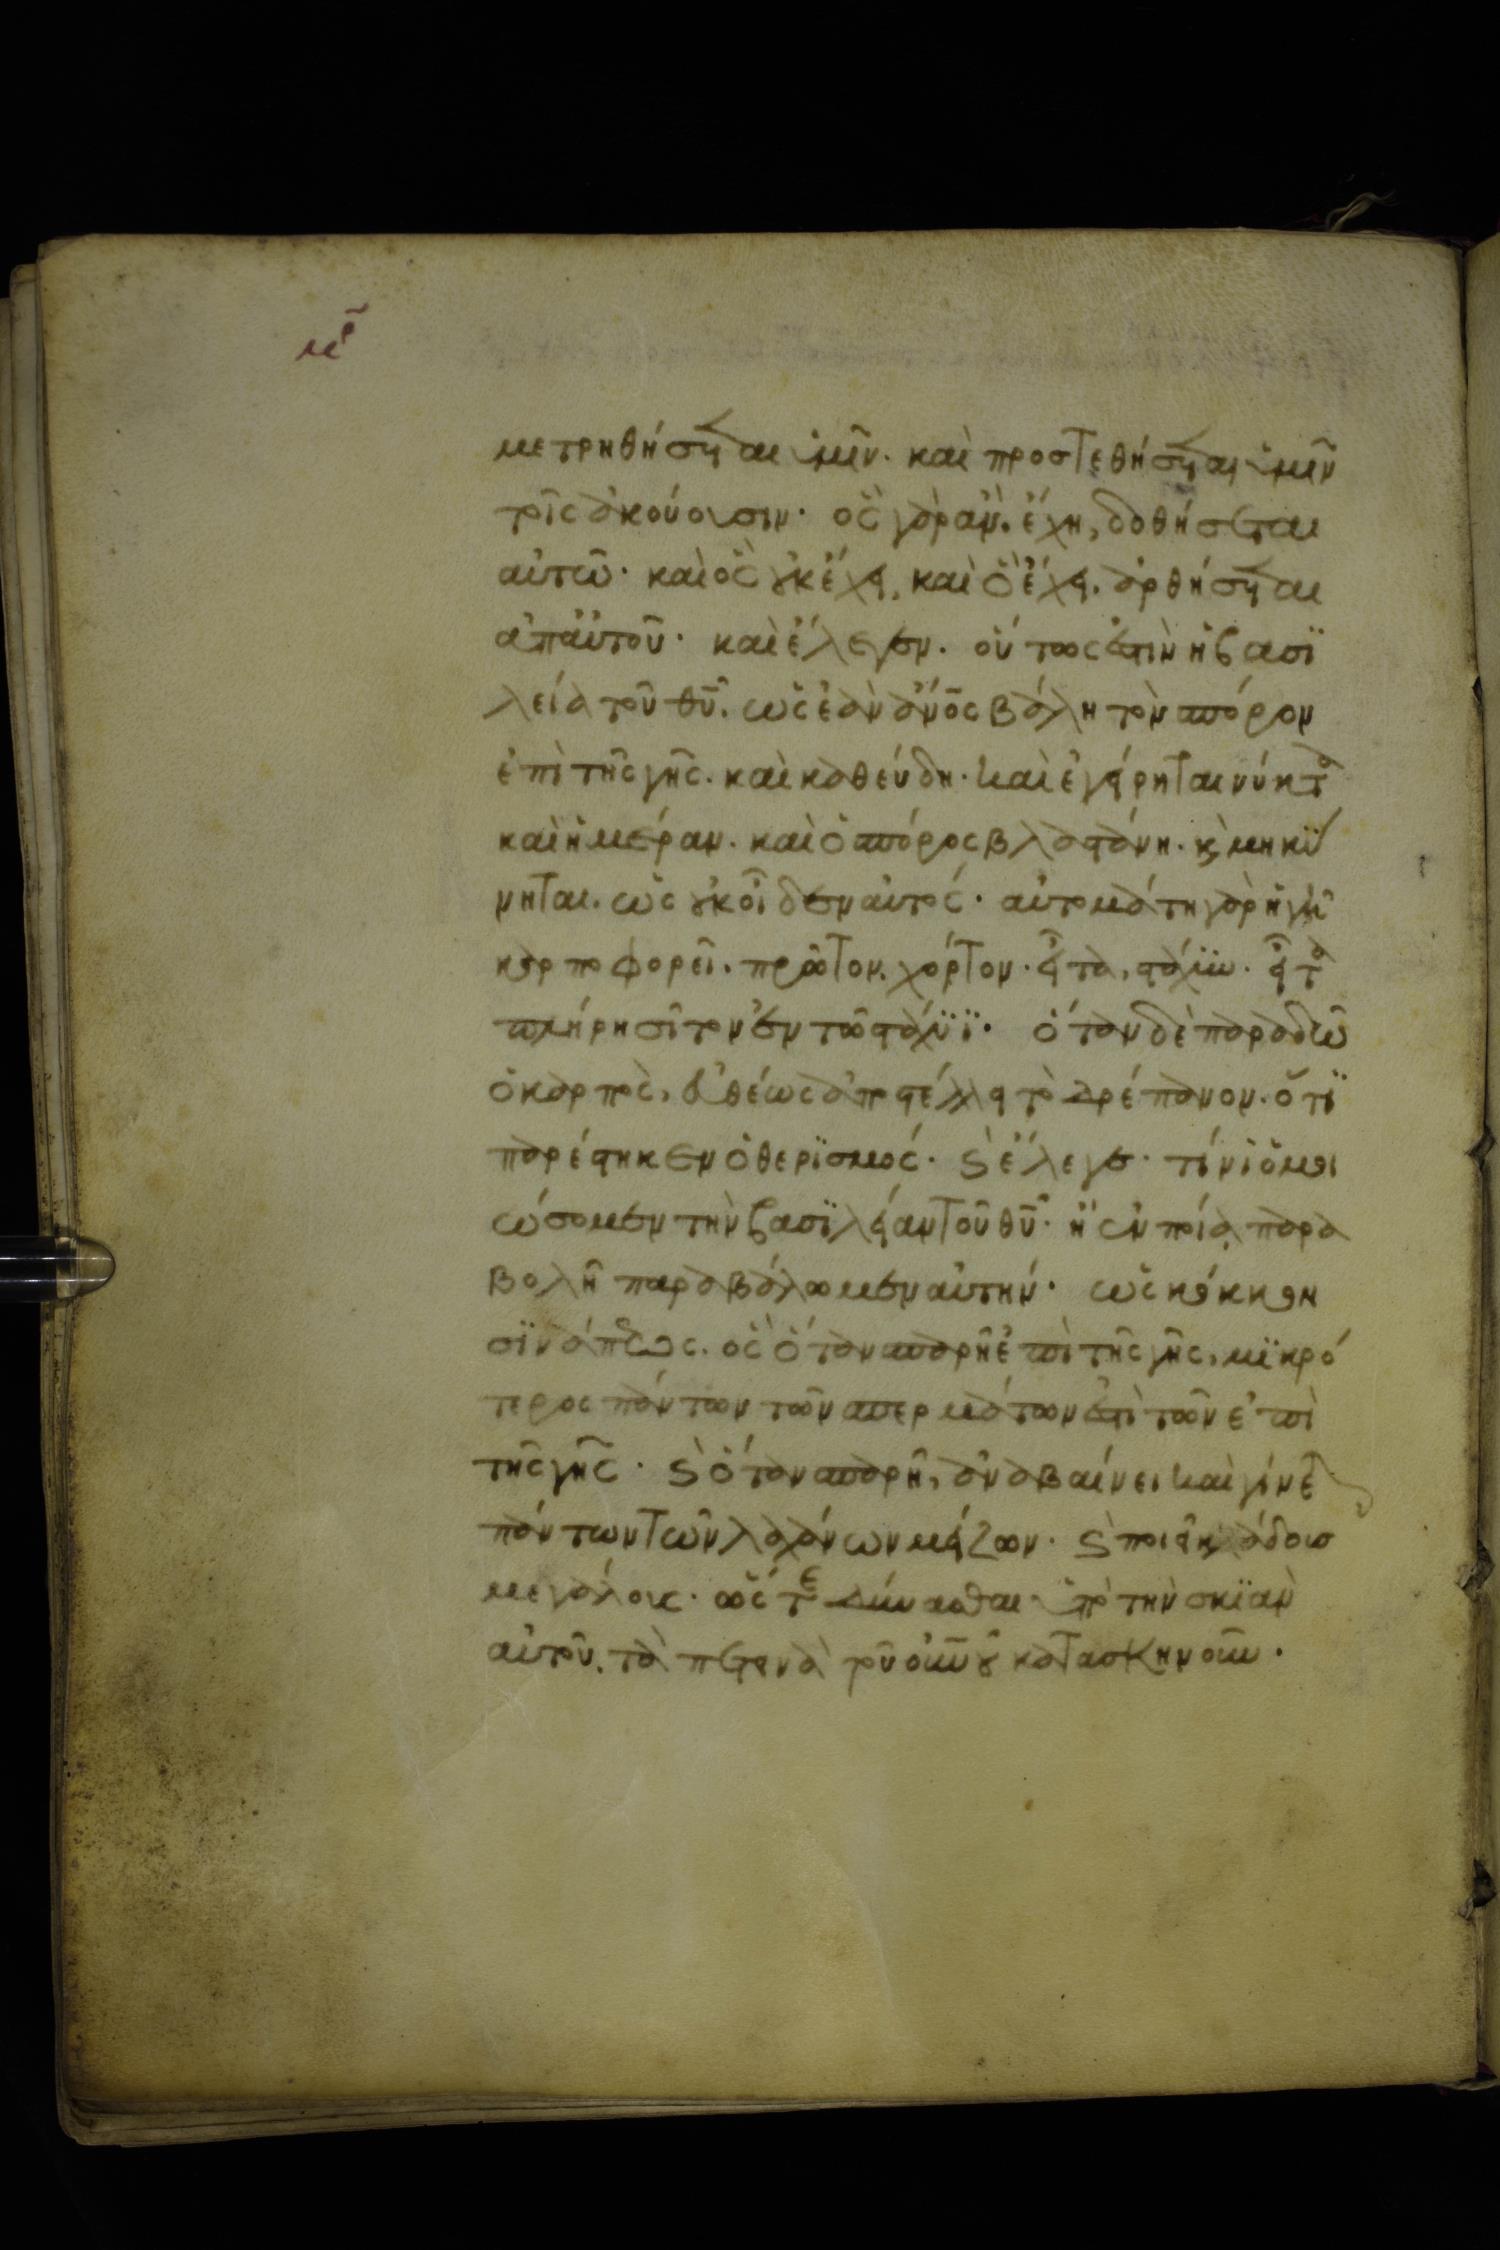 μρ
μετρηθήσεται ὑμῖν· καὶ προστεθήσεται ὑμῖν
τοῖς ἀκούουσιν· ὃς γὰρ ἂν ἔχη, δοθήσεται
αὐτῶ· καὶ ὃς οὐκ ἔχει, καὶ ὃ ἔχει. ἀρθήσεται
ἀπ αὐτοῦ· καὶ ἔλεγεν. οὕτως ἐστὶν ἡ βασϊ
λεία τοῦ θῦ. ὡς ἐὰν ἄνος βάλη τὸν σπόρον
ἐπὶ τῆς γῆς. καὶ καθεύδη· καὶ ἐγείρηται νύκτα
καὶ ἡμέραν. καὶ ὁ σπόρος βλαστάνη. κ μηκύ
νηται. ὡς οὐκ οἶδεν αὐτός· αὐτομάτη γὰρ ἡ γῆ
καρποφορεῖ. πρῶτον χόρτον· εἶτα, στάχυν· εἶτα
πλήρη σῖτον ἐν τῶ στάχυϊ· ὅταν δὲ παραδῶ
ὁ καρπὸς, εὐθέως ἀποστέλλει τὸ δρέπανον. ὅτϊ
παρέστηκεν ὁ θερϊσμός· ϛ ἔλεγε· τίνι ὁμοι
ώσομεν τὴν βασϊλείαν τοῦ θῦ· ἢ ἐν ποία παρα
βολῆ παραβάλωμεν αὐτήν· ὡς κόκκον
σϊνάπεως. ὃς ὅταν σπαρῆ ἐπὶ τῆς γῆς, μϊκρό
τερος πάντων τῶν σπερμάτων ἐστὶ τῶν ἐπὶ
τῆς γῆς· ϛ ὅταν σπαρῆ, ἀναβαίνει καὶ γίνε
πάντων τῶν λαχάνων μείζων· ϛ ποιεῖ κλάδους
μεγάλους· ὥστε δύνασθαι ὑπὸ τὴν σκϊὰν
αὐτοῦ. τὰ πετεινὰ τοῦ οὐνοῦ κατασκηνοῦν·